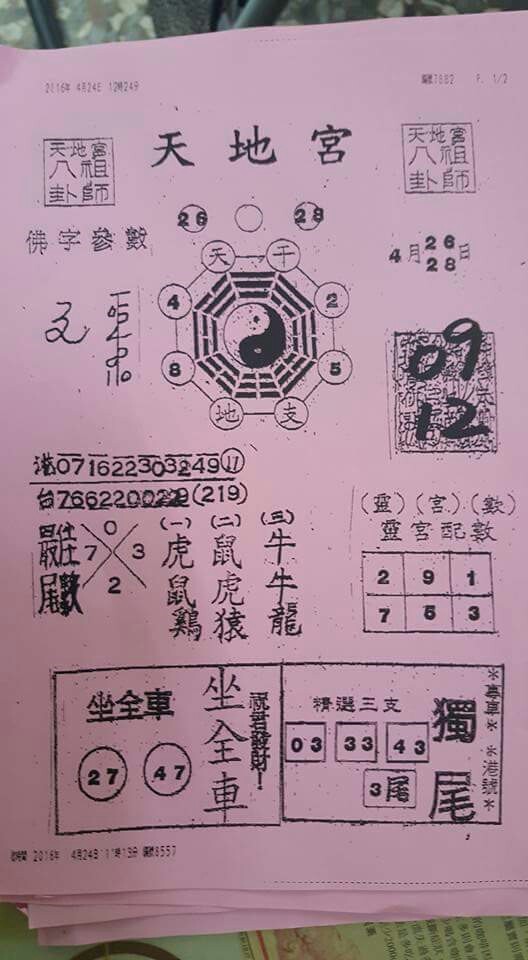 2016年 4月24日 12時24分
編號7882 P. 1/2
天地宮
八祖
卦師
天地宮
天地宮
八祖
卦師
26 28
佛字參數
4月26 28日
天 干
4 2
8 5
地 支
09
12
港071622303249⑪
台7662200229(219)
最佳
尾數
0
7 3
2
(一) (二) (三)
虎 鼠 牛
鼠 虎 牛
鷄 猿 龍
(靈)(宮)(數)
靈宮配數
2 9 1
7 5 3
坐全車
27 47
坐全車
祝君發財!
精選三支
03 33 43
3尾
獨尾
*專車* *港號*
2016年 4月24日 11時13分 編號8557